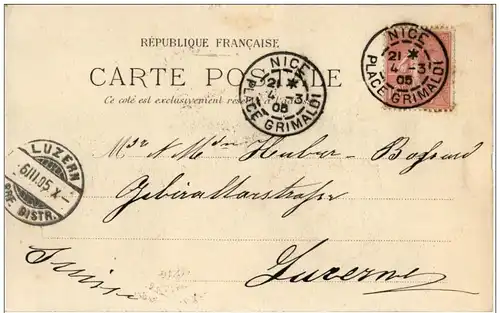 RÉPUBLIQUE FRANÇAISE
CARTE POSTALE
Ce côté est exclusivement réservé à l'adresse
NICE
21 *
4 -3
05
PLACE GRIMALDI
NICE
21 *
4 -3
05
PLACE GRIMALDI
LUZERN
-6III.05.X-
BRF. DISTR.
Mr & Mdme Huber-Bossard
Gibraltarstrasse
Luzerne
Suisse